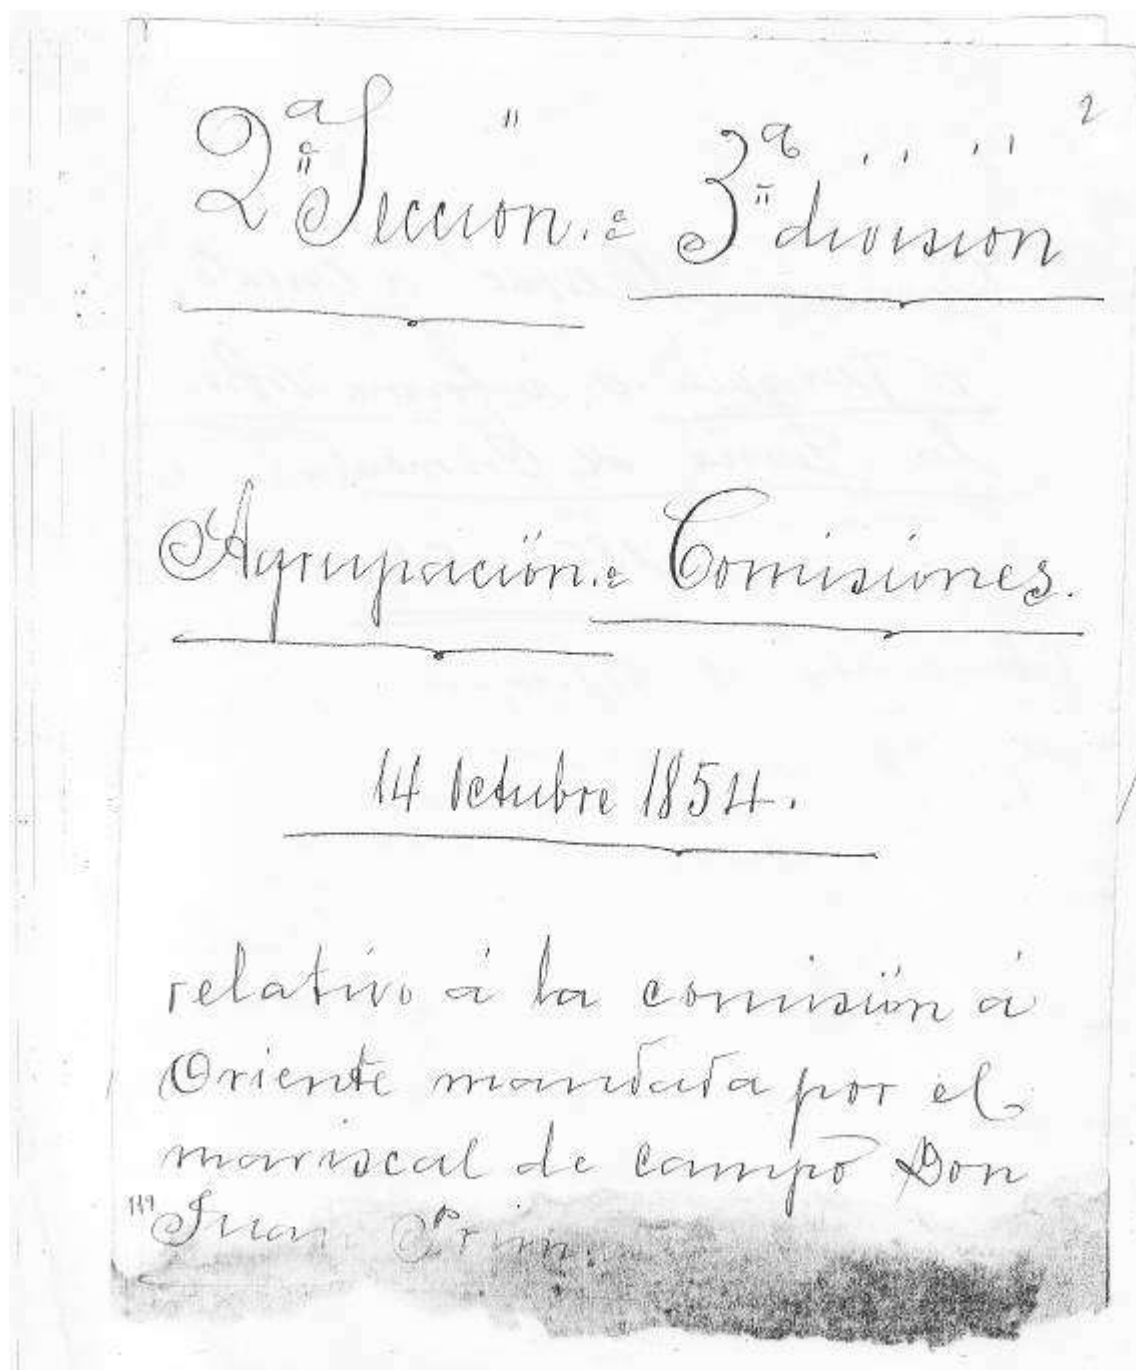 2
2ª Sección. 3ª división
Agrupación. Comisiones.
14 Octubre 1854.
relativo á la comisión á
Oriente mandada por el
mariscal de campo Don
Juan Prim.